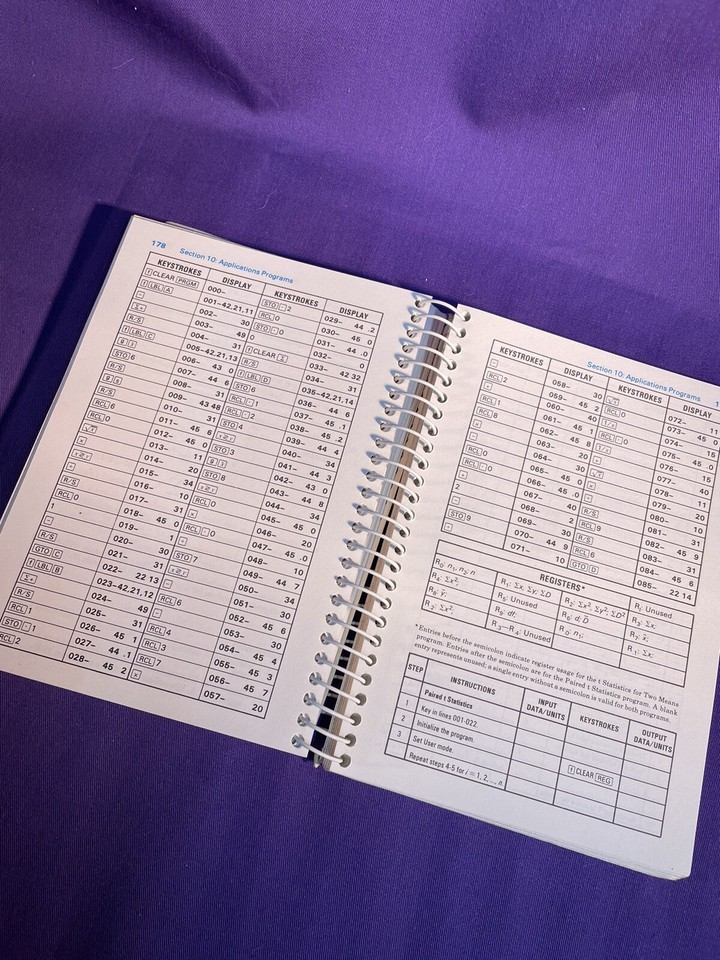 178 Section 10: Applications Programs
KEYSTROKES DISPLAY KEYSTROKES DISPLAY
f CLEAR PRGM 000–
f LBL A 001–42,21,11
− 002– 30
Σ+ 003– 49
R/S 004– 31
f LBL C 005–42,21,13
g x̄ 006– 43 0
STO 6 007– 44 6
R/S 008– 31
g s 009– 43 48
R/S 010– 31
RCL 6 011– 45 6
RCL 0 012– 45 0
√x 013– 11
× 014– 20
x≷y 015– 34
÷ 016– 10
R/S 017– 31
RCL 0 018– 45 0
1 019– 1
− 020– 30
R/S 021– 31
GTO C 022– 22 13
f LBL B 023–42,21,12
Σ+ 024– 49
R/S 025– 31
RCL 1 026– 45 1
STO . 1 027– 44 .1
RCL 2 028– 45 2
STO . 2 029– 44 .2
RCL 0 030– 45 0
STO . 0 031– 44 .0
0 032– 0
f CLEAR Σ 033– 42 32
R/S 034– 31
f LBL D 035–42,21,14
STO 6 036– 44 6
RCL . 1 037– 45 .1
RCL . 2 038– 45 .2
STO 4 039– 44 4
x≷y 040– 34
STO 3 041– 44 3
g x̄ 042– 43 0
STO 8 043– 44 8
x≷y 044– 34
RCL 0 045– 45 0
× 046– 20
RCL . 0 047– 45 .0
÷ 048– 10
STO 7 049– 44 7
x≷y 050– 34
− 051– 30
RCL 6 052– 45 6
− 053– 30
RCL 4 054– 45 4
RCL 3 055– 45 3
RCL 7 056– 45 7
× 057– 20
Section 10: Applications Programs 1
KEYSTROKES DISPLAY KEYSTROKES DISPLAY
− 058– 30
RCL 2 059– 45 2
+ 060– 40
RCL 1 061– 45 1
RCL 8 062– 45 8
× 063– 20
− 064– 30
RCL 0 065– 45 0
RCL . 0 066– 45 .0
+ 067– 40
2 068– 2
− 069– 30
STO 9 070– 44 9
÷ 071– 10
√x 072– 11
RCL 0 073– 45 0
1/x 074– 15
RCL . 0 075– 45 .0
1/x 076– 15
+ 077– 40
√x 078– 11
× 079– 20
÷ 080– 10
R/S 081– 31
RCL 9 082– 45 9
R/S 083– 31
RCL 6 084– 45 6
GTO D 085– 22 14
REGISTERS*
R₀: n₁, n₂; n R₁: Σx, Σy; ΣD R₂: Σx², Σy²; ΣD² R₃: Σx;
R₄: Σx²; R₅: Unused R₆: d; D̄ R₇: x̄;
R₈: ȳ; R₉: df; R.₀: n₁; R.₁: Σx;
R.₂: Σx²; R.₃–R.₄: Unused RI: Unused
*Entries before the semicolon indicate register usage for the t Statistics for Two Means
program. Entries after the semicolon are for the Paired t Statistics program. A blank
entry represents unused; a single entry without a semicolon is valid for both programs.
STEP INSTRUCTIONS INPUT DATA/UNITS KEYSTROKES OUTPUT DATA/UNITS
Paired t Statistics
1 Key in lines 001-022.
2 Initialize the program. f CLEAR REG
3 Set User mode.
Repeat steps 4-5 for i = 1, 2, ..., n.